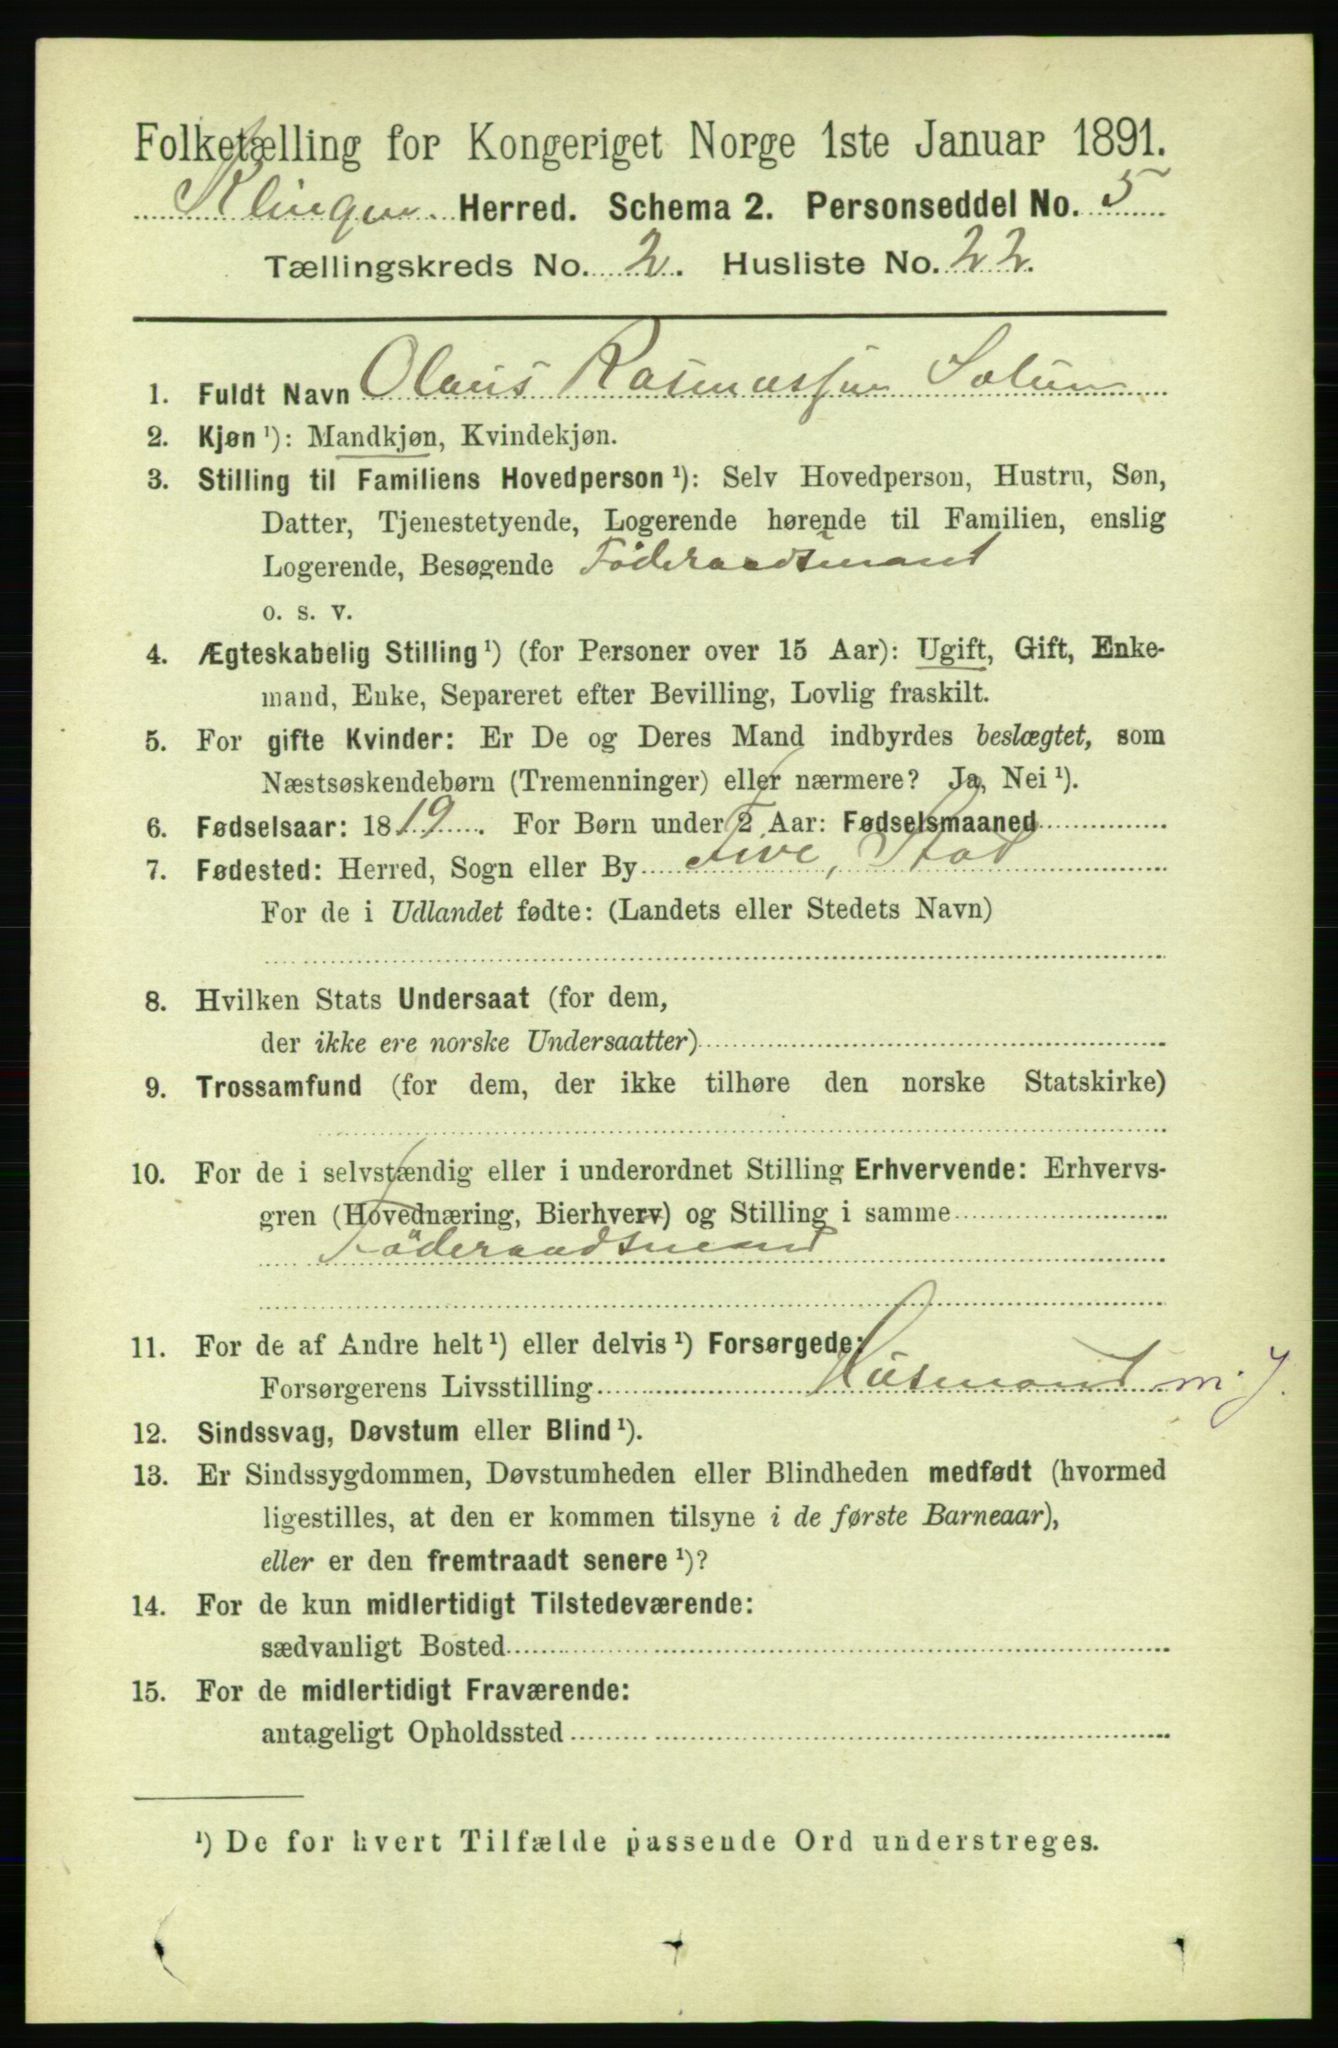 Folketælling for Kongeriget Norge 1ste Januar 1891.
Klingen Herred. Schema 2. Personseddel No. 5
Tællingskreds No. 2. Husliste No. 22.
1. Fuldt Navn Olaus Rasmussen Solum
2. Kjøn ¹): Mandkjøn, Kvindekjøn.
3. Stilling til Familiens Hovedperson ¹): Selv Hovedperson, Hustru, Søn,
Datter, Tjenestetyende, Logerende hørende til Familien, enslig
Logerende, Besøgende Föderaadsmand
o. s. v.
4. Ægteskabelig Stilling ¹) (for Personer over 15 Aar): Ugift, Gift, Enke-
mand, Enke, Separeret efter Bevilling, Lovlig fraskilt.
5. For gifte Kvinder: Er De og Deres Mand indbyrdes beslægtet, som
Næstsøskendebørn (Tremenninger) eller nærmere? Ja, Nei ¹).
6. Fødselsaar: 1819. For Børn under 2 Aar: Fødselsmaaned
7. Fødested: Herred, Sogn eller By Five, Stod
For de i Udlandet fødte: (Landets eller Stedets Navn)
8. Hvilken Stats Undersaat (for dem,
der ikke ere norske Undersaatter)
9. Trossamfund (for dem, der ikke tilhøre den norske Statskirke)
10. For de i selvstændig eller i underordnet Stilling Erhvervende: Erhvervs-
gren (Hovednæring, Bierhverv) og Stilling i samme
Föderaadsmand
11. For de af Andre helt ¹) eller delvis ¹) Forsørgede:
Forsørgerens Livsstilling Husmand m. J.
12. Sindssvag, Døvstum eller Blind ¹).
13. Er Sindssygdommen, Døvstumheden eller Blindheden medfødt (hvormed
ligestilles, at den er kommen tilsyne i de første Barneaar),
eller er den fremtraadt senere ¹)?
14. For de kun midlertidigt Tilstedeværende:
sædvanligt Bosted
15. For de midlertidigt Fraværende:
antageligt Opholdssted
¹) De for hvert Tilfælde passende Ord understreges.